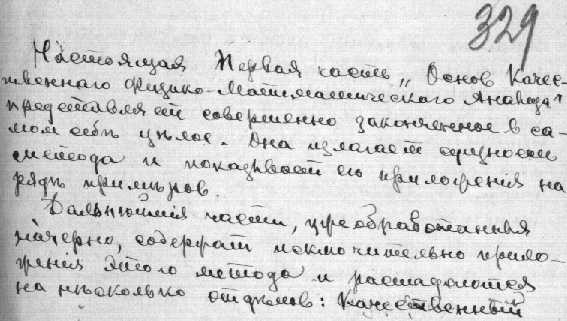 329
Настоящая Первая часть „Основ Качес-
твеннаго Физико-Математического Анализа"
представляет совершенно законченное в са-
мом себѣ цѣлое. Она излагает сущность
метода и показывает его приложения на
рядѣ примѣров.
Дальнѣйшия части, уже обработанныя
начерно, содержат исключительно прило-
жения этого метода и распадаются
на нѣсколько отдѣлов: Качественный